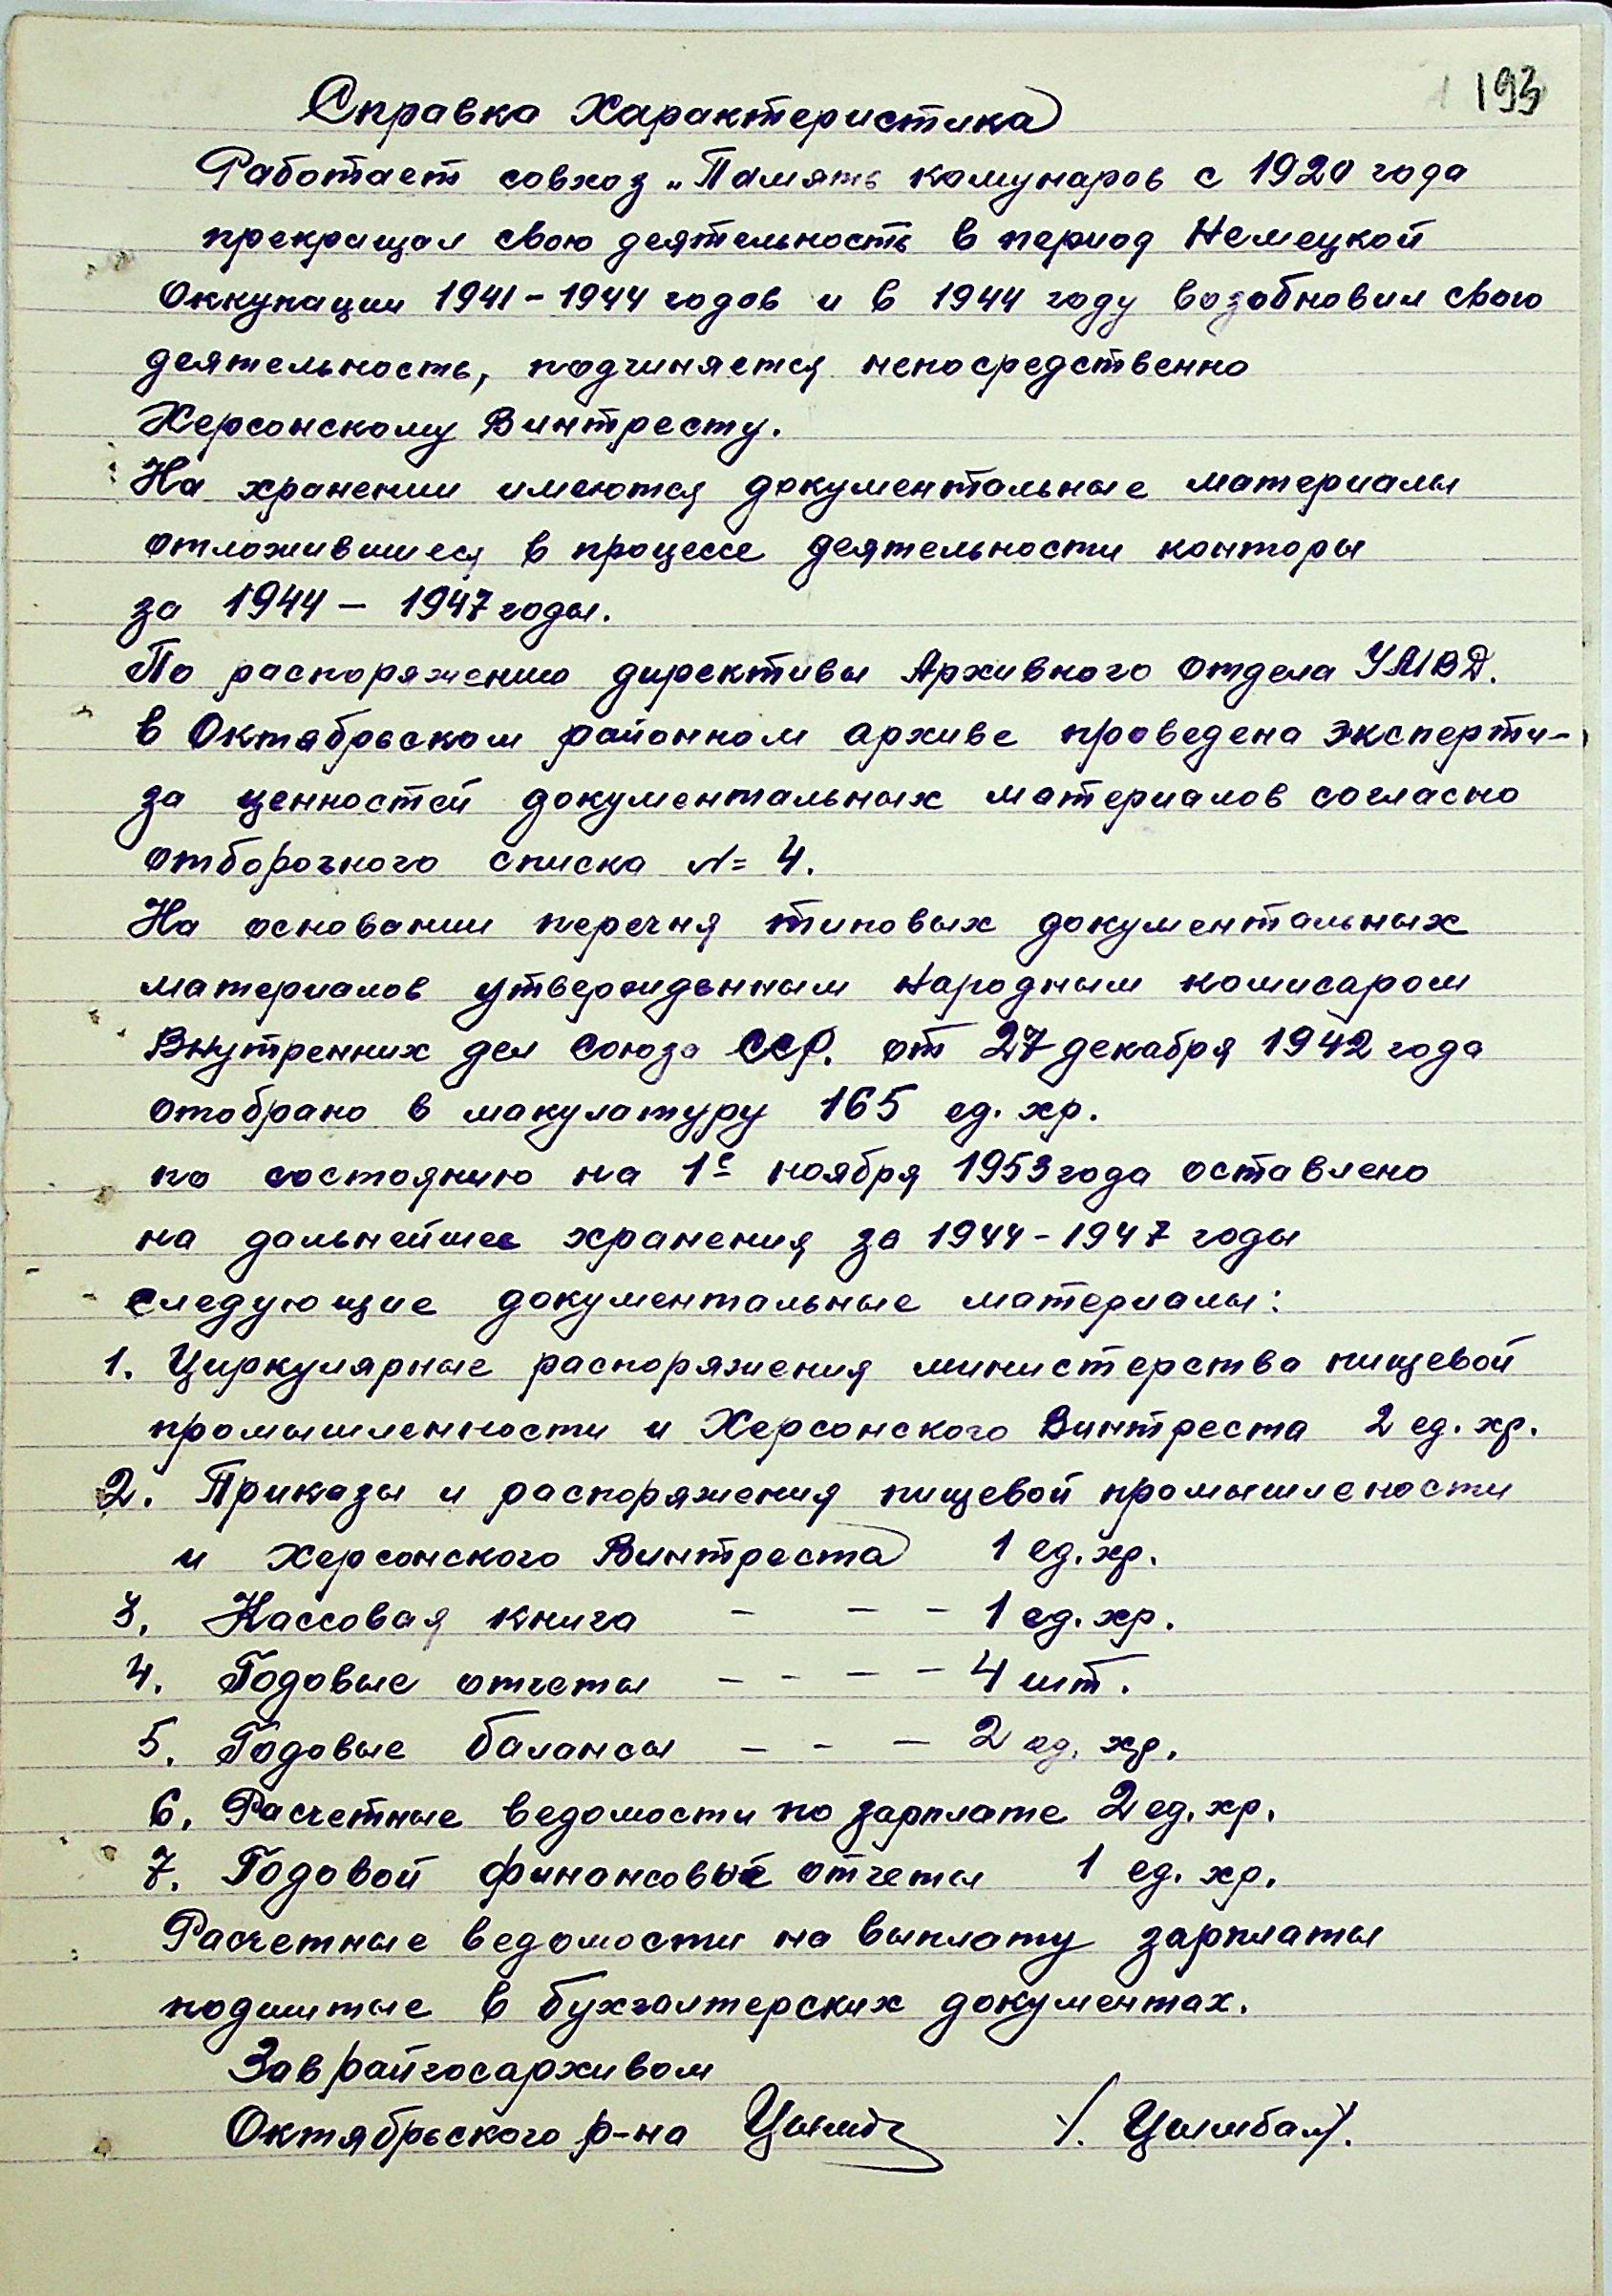 193
Справка Характеристика
Работает совхоз „Память комунаров с 1920 года
прекращал свою деятельность в период Немецкой
Оккупации 1941-1944 годов и в 1944 году возобновил свою
деятельность, подчиняется непосредственно
Херсонскому Винтресту.
На хранении имеются документальные материалы
отложившиеся в процессе деятельности конторы
за 1944 - 1947 годы.
По распоряжению директивы Архивного отдела УМВД.
в Октябрьском районном архиве проведена эксперти-
за ценностей документальных материалов согласно
отборочного списка N= 4.
На основании перечня типовых документальных
материалов утвержденным Народным комисаром
Внутренних дел Союза ССР. от 27 декабря 1942 года
отобрано в макулатуру 165 ед. хр.
по состоянию на 1е ноября 1953 года оставлено
на дальнейшее хранения за 1944-1947 годы
следующие документальные материалы:
1. Циркулярные распоряжения министерства пищевой
промышленности и Херсонского Винтреста 2 ед. хр.
2. Приказы и распоряжения пищевой промышлености
и Херсонского Винтреста 1 ед. хр.
3. Кассовая книга - - - 1 ед. хр.
4. Годовые отчеты - - - - 4 шт.
5. Годовые балансы - - - 2 ед. хр.
6. Расчетные ведомости по зарплате 2 ед. хр.
7. Годовой финансовые отчеты 1 ед. хр.
Расчетные ведомости на выплату зарплаты
подшитые в бухгалтерских документах.
Зав райгосархивом
Октябрьского р-на /. Цымбал/.